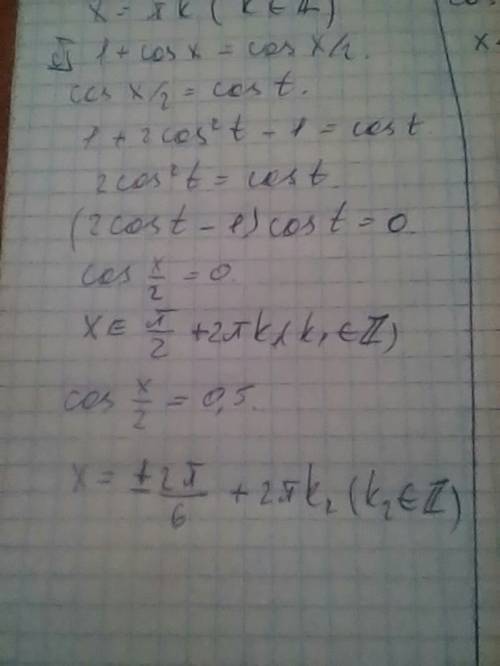 x = πk ( k ∈ ℤ )
1 + cos x = cos x/2.
cos x/2 = cos t.
1 + 2cos² t - 1 = cos t
2cos² t = cos t.
(2cos t - 1) cos t = 0.
cos x/2 = 0.
x ∈ π/2 + 2πk₁ (k₁ ∈ ℤ)
cos x/2 = 0,5.
x = ± 2π/6 + 2πk₂ (k₂ ∈ ℤ)